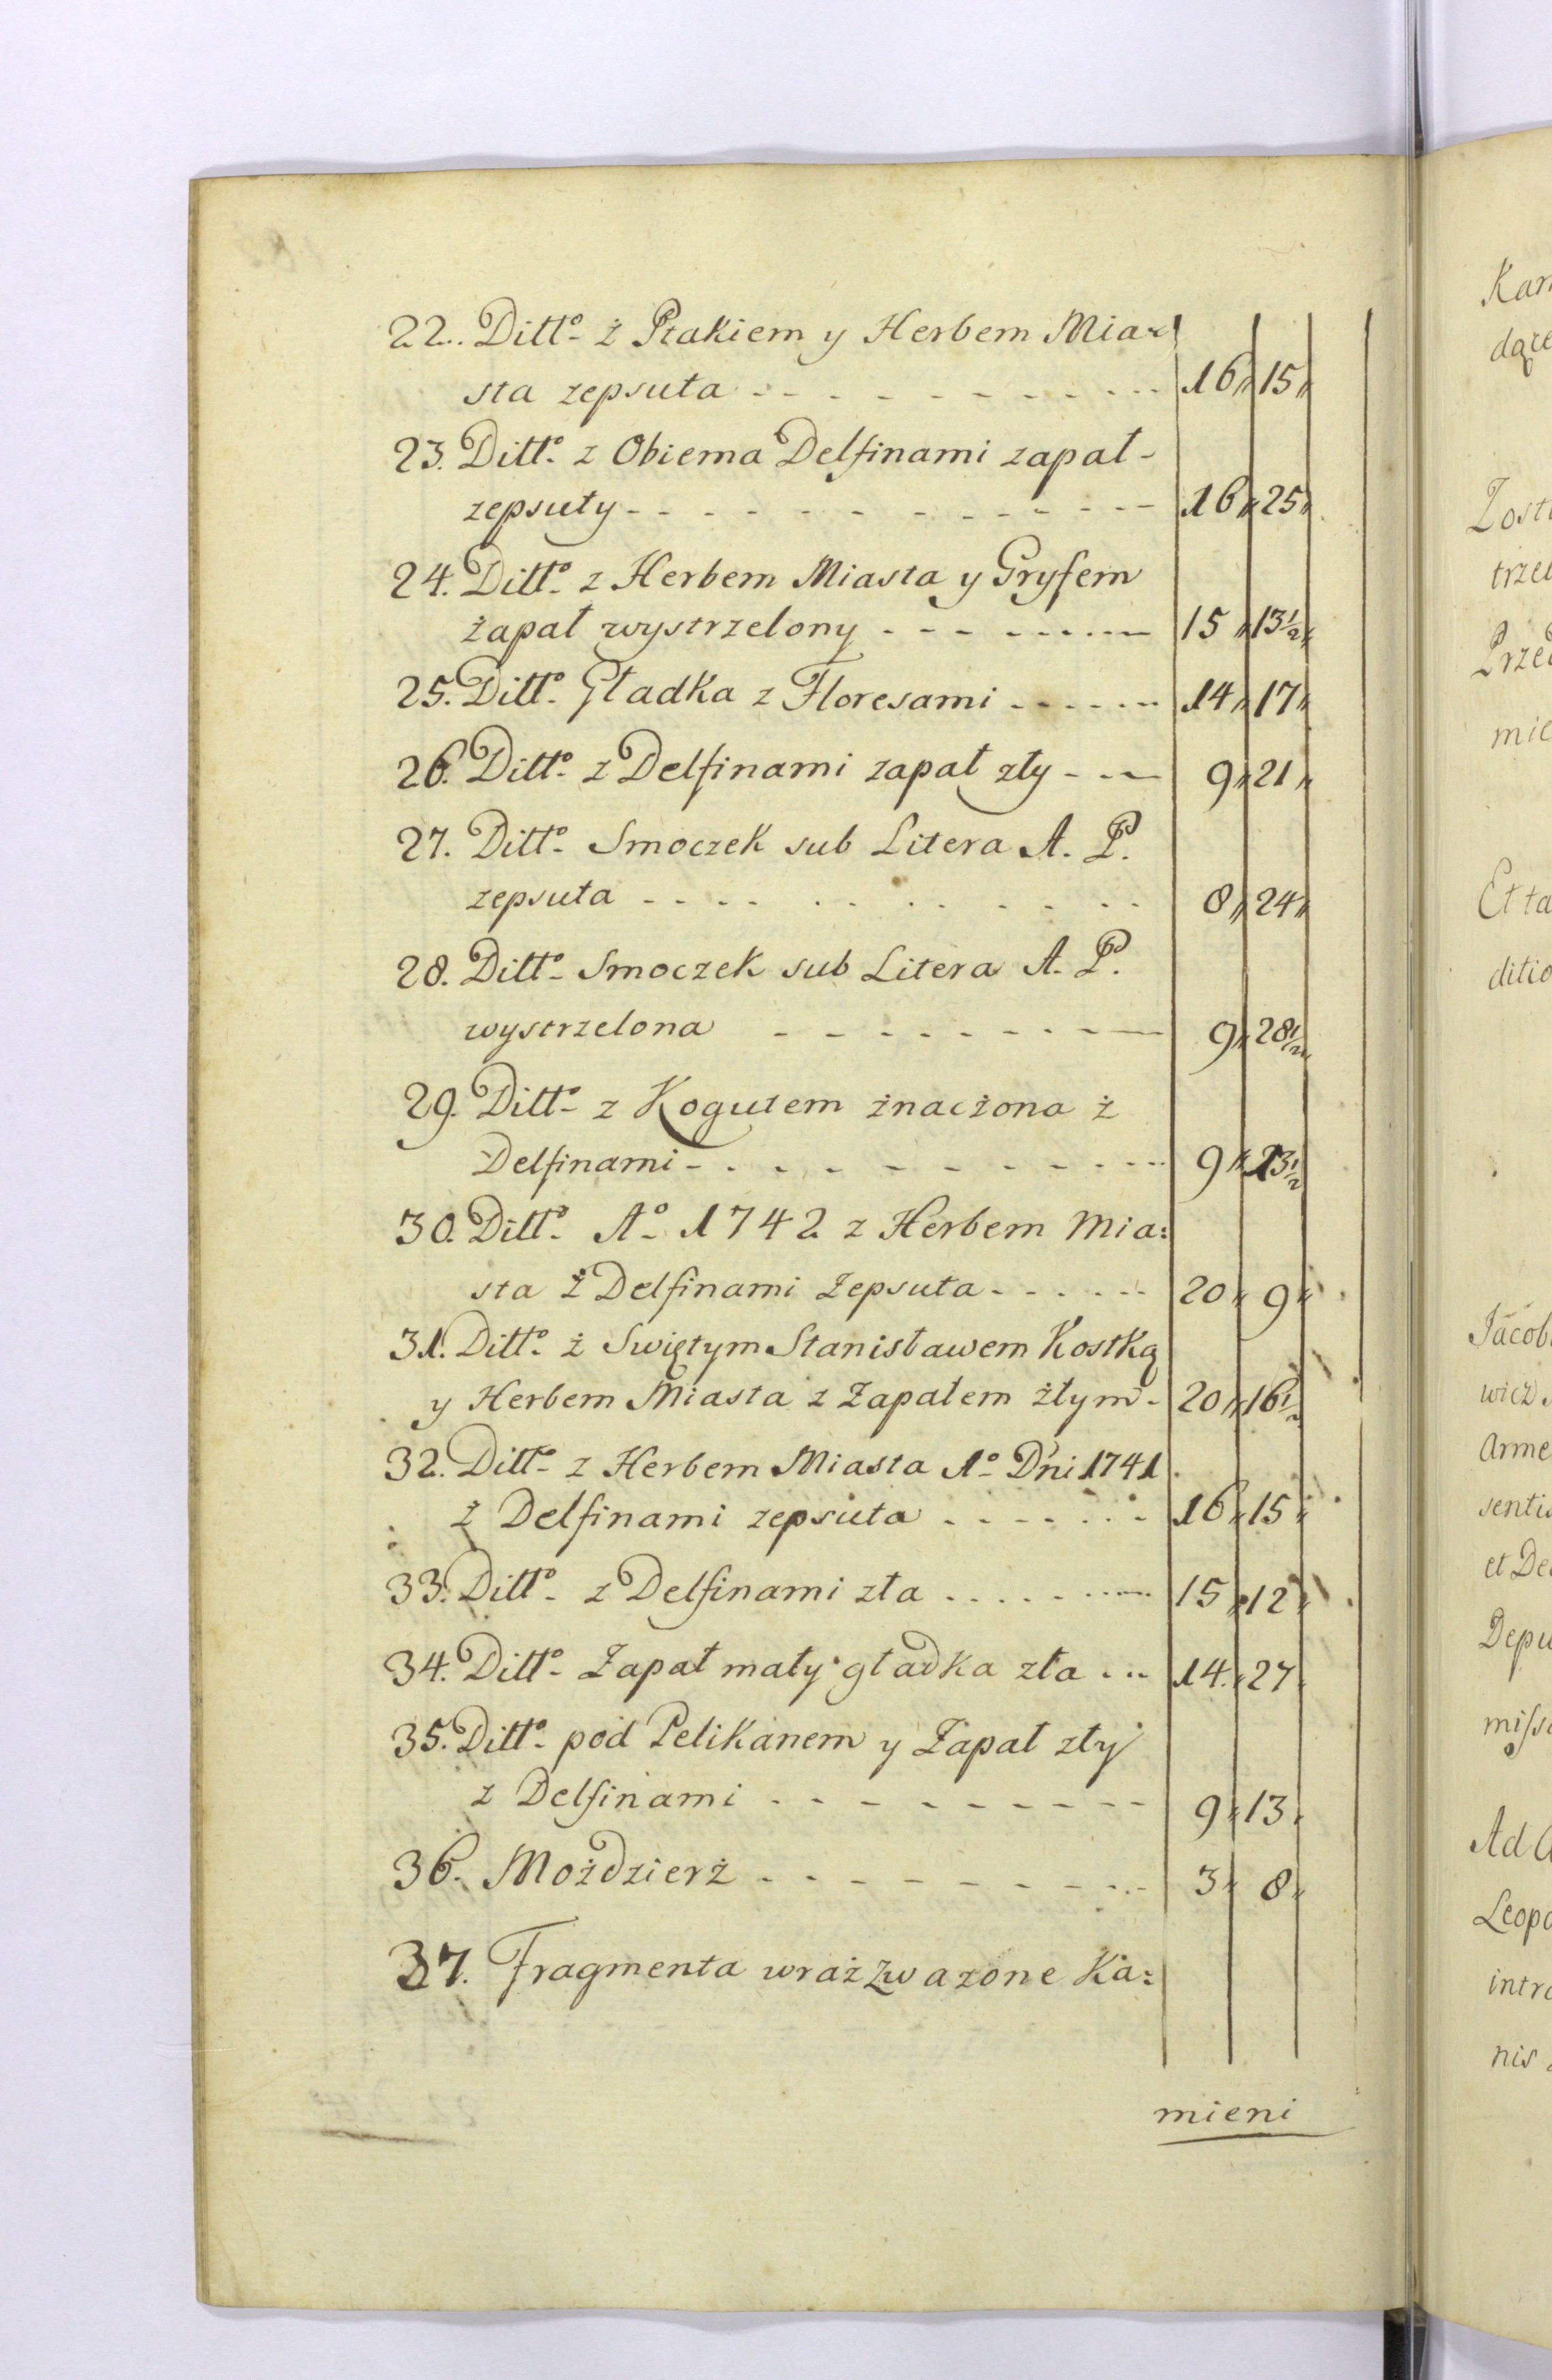 22. Ditto ż Ptakiem y Herbem Mia=
sta zepsuta - - - - - - - - - - 16 " 15 "
23. Ditto z Obiema Delfinami zapał -
zepsuty - - - - - - - - - - - - 16 " 25 "
24. Ditto z Herbem Miasta y Gryfem
żapał wystrzelony - - - - - - - 15 " 13½ "
25. Ditto Gładka z Floresami - - - - - - 14 " 17 "
26. Ditto z Delfinami zapał zły - - - 9 " 21 "
27. Ditto Smoczek sub Litera A. P.
zepsuta - - - - - - - - - - - 8 " 24 "
28. Ditto Smoczek sub Litera A. P.
wystrzelona - - - - - - - - - 9 " 28½ "
29. Ditto z Kogutem żnaczona ż
Delfinami - - - - - - - - - - - 9 " 23½
30. Ditto Ao 1742 z Herbem Mia:
sta ż Delfinami Zepsuta - - - - - - 20 " 9 "
31. Ditto ż Swiętym Stanisławem Kostką
y Herbem Miasta z Zapałem żłym - 20 " 16½
32. Ditto z Herbem Miasta Ao Dn̄i 1741
ż Delfinami zepsuta - - - - - - - 16 " 15 "
33. Ditto z Delfinami zła - - - - - - - 15 " 12 "
34. Ditto Zapał mały gładka zła - - - 14 " 27
35. Ditto pod Pelikanem y Zapał zły
z Delfinami - - - - - - - - - 9 " 13 "
36. Moździerż - - - - - - - - - 3 " 8 "
37. Fragmenta wraż zwazone Ka:
mieni
Kar
dące
Zost
trzel
Przed
mie
Et ta
ditio
Jacob
wicz
Arme
sentis
et De
Depu
misso
Ad
Leopo
intro
nis